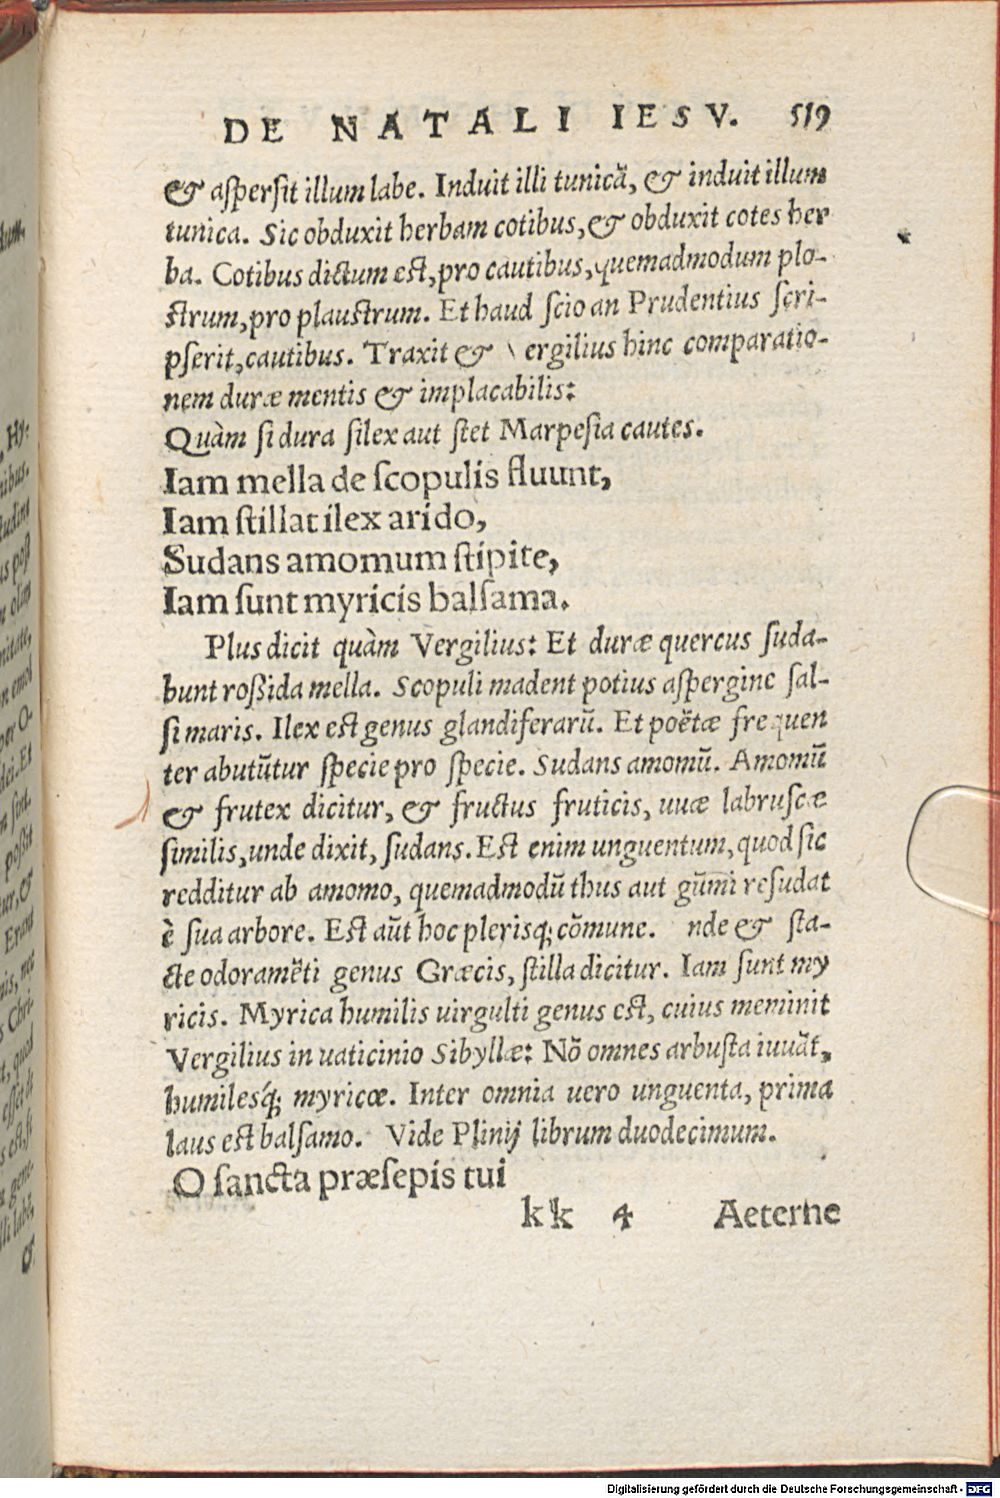 DE NATALI IESV. 519
& aspersit illum labe. Induit illi tunicã, & induit illum
tunica. Sic obduxit herbam cotibus, & obduxit cotes her
ba. Cotibus dictum est, pro cautibus, quemadmodum plo-
strum, pro plaustrum. Et haud scio an Prudentius scri-
pserit, cautibus. Traxit & ergilius hinc comparatio-
nem duræ mentis & implacabilis:
Quàm si dura silex aut stet Marpesia cautes.
Iam mella de scopulis fluunt,
Iam stillat ilex arido,
Sudans amomum stipite,
Iam sunt myricis balsama.
Plus dicit quàm Vergilius: Et duræ quercus suda-
bunt roßida mella. Scopuli madent potius aspergine sal-
si maris. Ilex est genus glandiferarũ. Et poëtæ frequen
ter abutũtur specie pro specie. Sudans amomũ. Amomũ
& frutex dicitur, & fructus fruticis, uuæ labruscæ
similis, unde dixit, sudans. Est enim unguentum, quod sic
redditur ab amomo, quemadmodũ thus aut gũmi resudat
è sua arbore. Est aũt hoc plerisq; cõmune. nde & sta-
cte odoramẽti genus Græcis, stilla dicitur. Iam sunt my
ricis. Myrica humilis uirgulti genus est, cuius meminit
Vergilius in uaticinio Sibyllæ: Nõ omnes arbusta iuuãt,
humilesq́; myricæ. Inter omnia uero unguenta, prima
laus est balsamo. Vide Plinij librum duodecimum.
O sancta præsepis tui
kk 4 Aeterne
dum.
Hy-
nibus.
tudine
us post
olim
nitate,
emol
per O-
dei. Et
sint.
poßit
tur, &
Erant
nis, nec
Chri-
t, quod
esse de
est, si
gene-
illi labe,
&
Digitalisierung gefördert durch die Deutsche Forschungsgemeinschaft - DFG